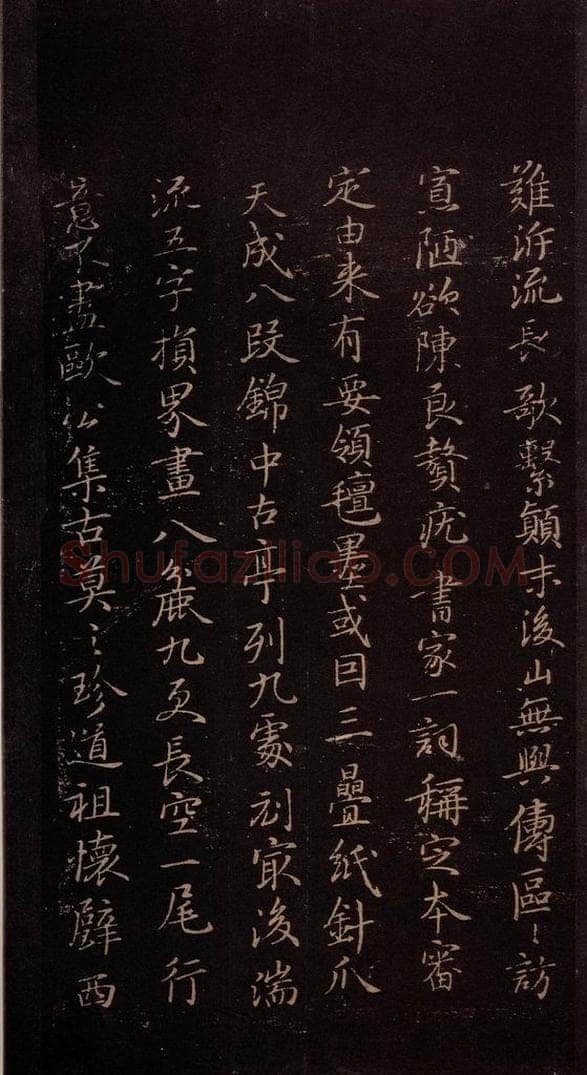 難泝流長歌繫顛末後山無興傳區〻訪
寡陋欲陳良贅疣書家一詞稱定本審
定由来有要領氊墨或因三疊紙針爪
天成八段錦中古亭列九處刓最後湍
流五字損界畫八麄九更長空一尾行
意不盡歐公集古莫〻珍道祖懷璧西
Shufaziliao.COM